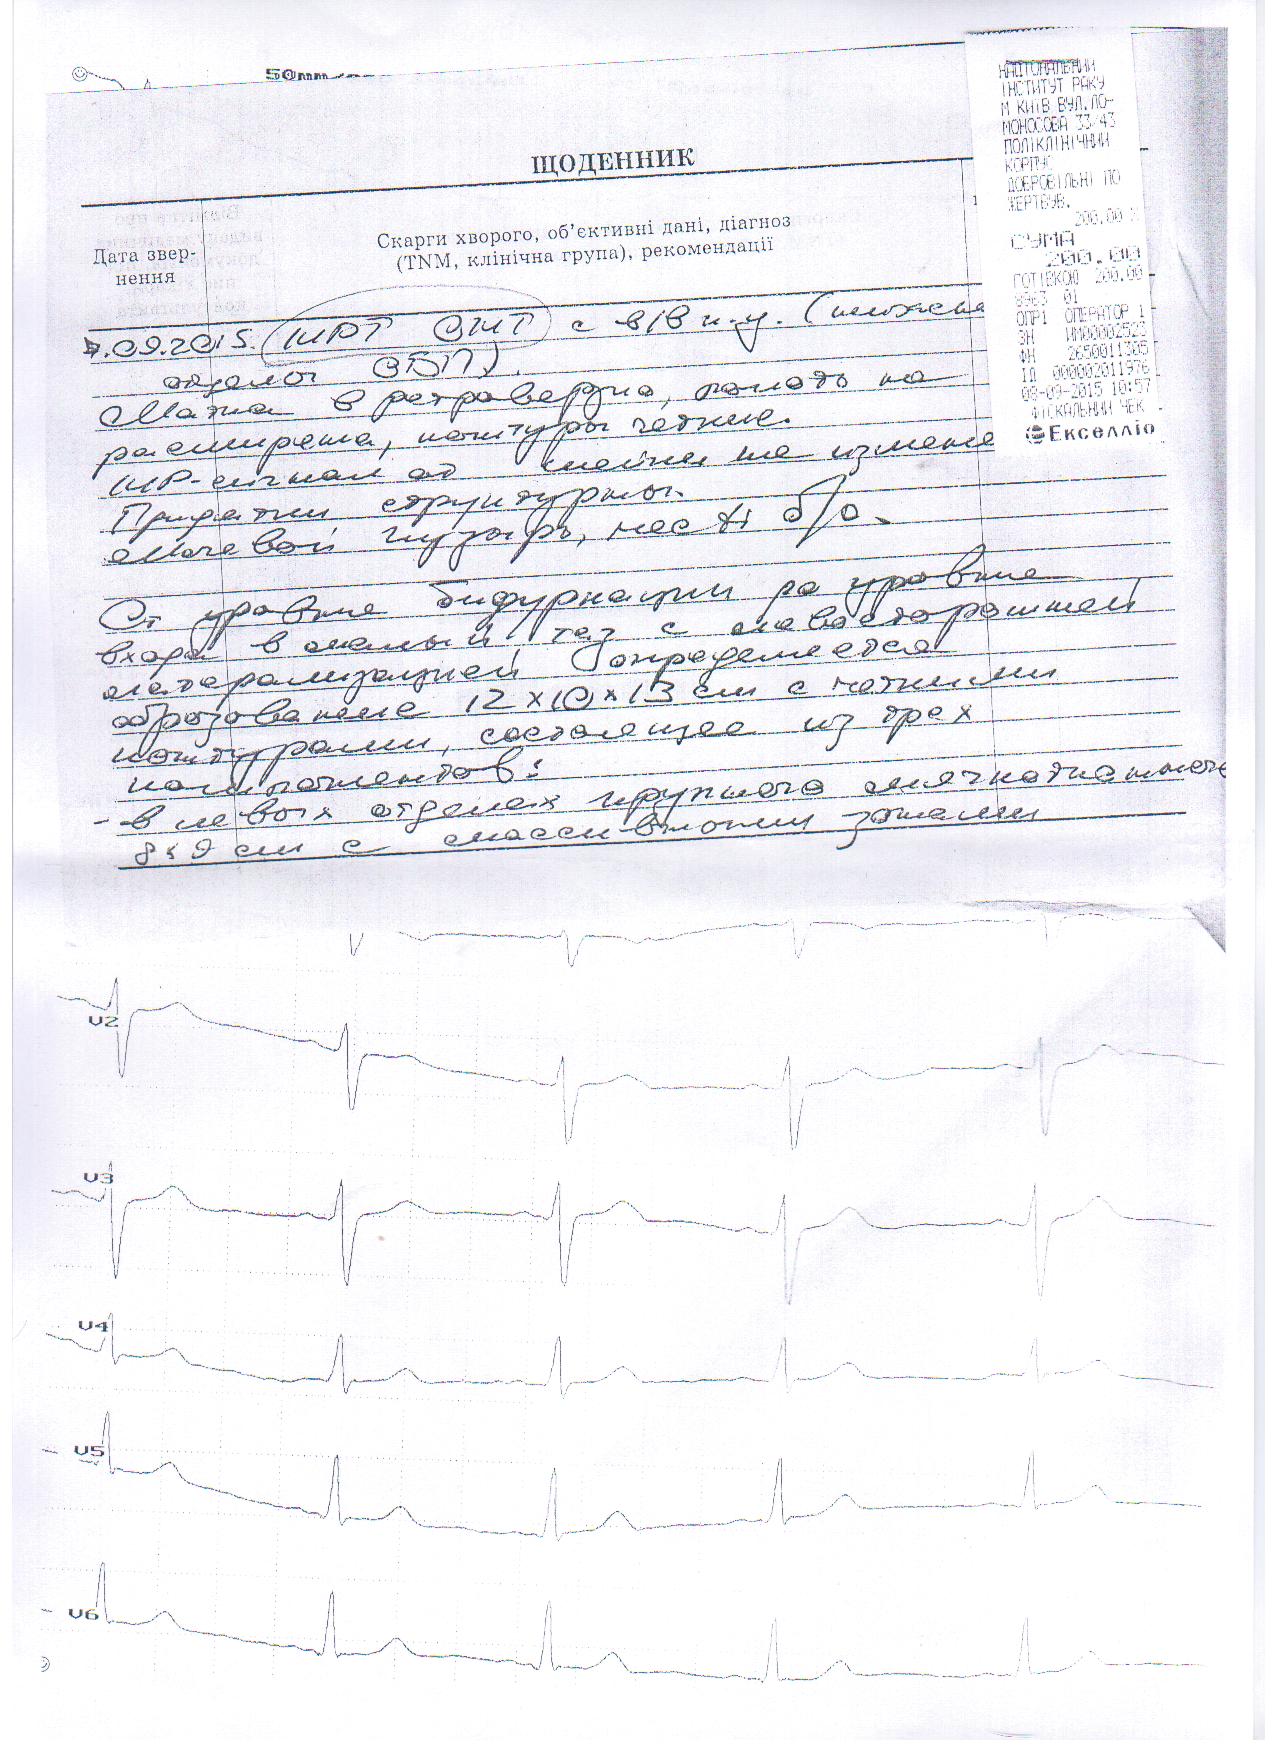 50mm/
ЩОДЕННИК
Дата звер-
нення
Скарги хворого, об’єктивні дані, діагноз
(TNM, клінічна група), рекомендації
.09.2015. МРТ ОМТ с в/в к.у. (нижние
отделы ОБП).
Матка в ретроверзио, полость не
расширена, контуры четкие.
МР-сигнал от шейки не изменен
Придатки структурны.
Мочевой пузырь, кости б/о.
От уровня бифуркации до уровня
входа в малый таз с левосторонней
латерализацией определяется
образование 12×10×13 см с четкими
контурами, состоящее из трех
компонентов:
- в левых отделах крупного мягкотканного
8×9 см с массивными зонами
НАЦІОНАЛЬНИЙ
ІНСТИТУТ РАКУ
М КИЇВ ВУЛ.ЛО-
МОНОСОВА 33/43
ПОЛІКЛІНІЧНИЙ
КОРПУС
ДОБРОВІЛЬНІ ПО
ЖЕРТВУВ.
200.00
СУМА
200.00
ГОТІВКОЮ 200.00
8963 01
ОПР1 ОПЕРАТОР 1
ЗН НМ00002523
ФН 2650011305
ІД 000002011976
08-09-2015 10:57
ФІСКАЛЬНИЙ ЧЕК
Екселліо
V2
V3
V4
V5
V6